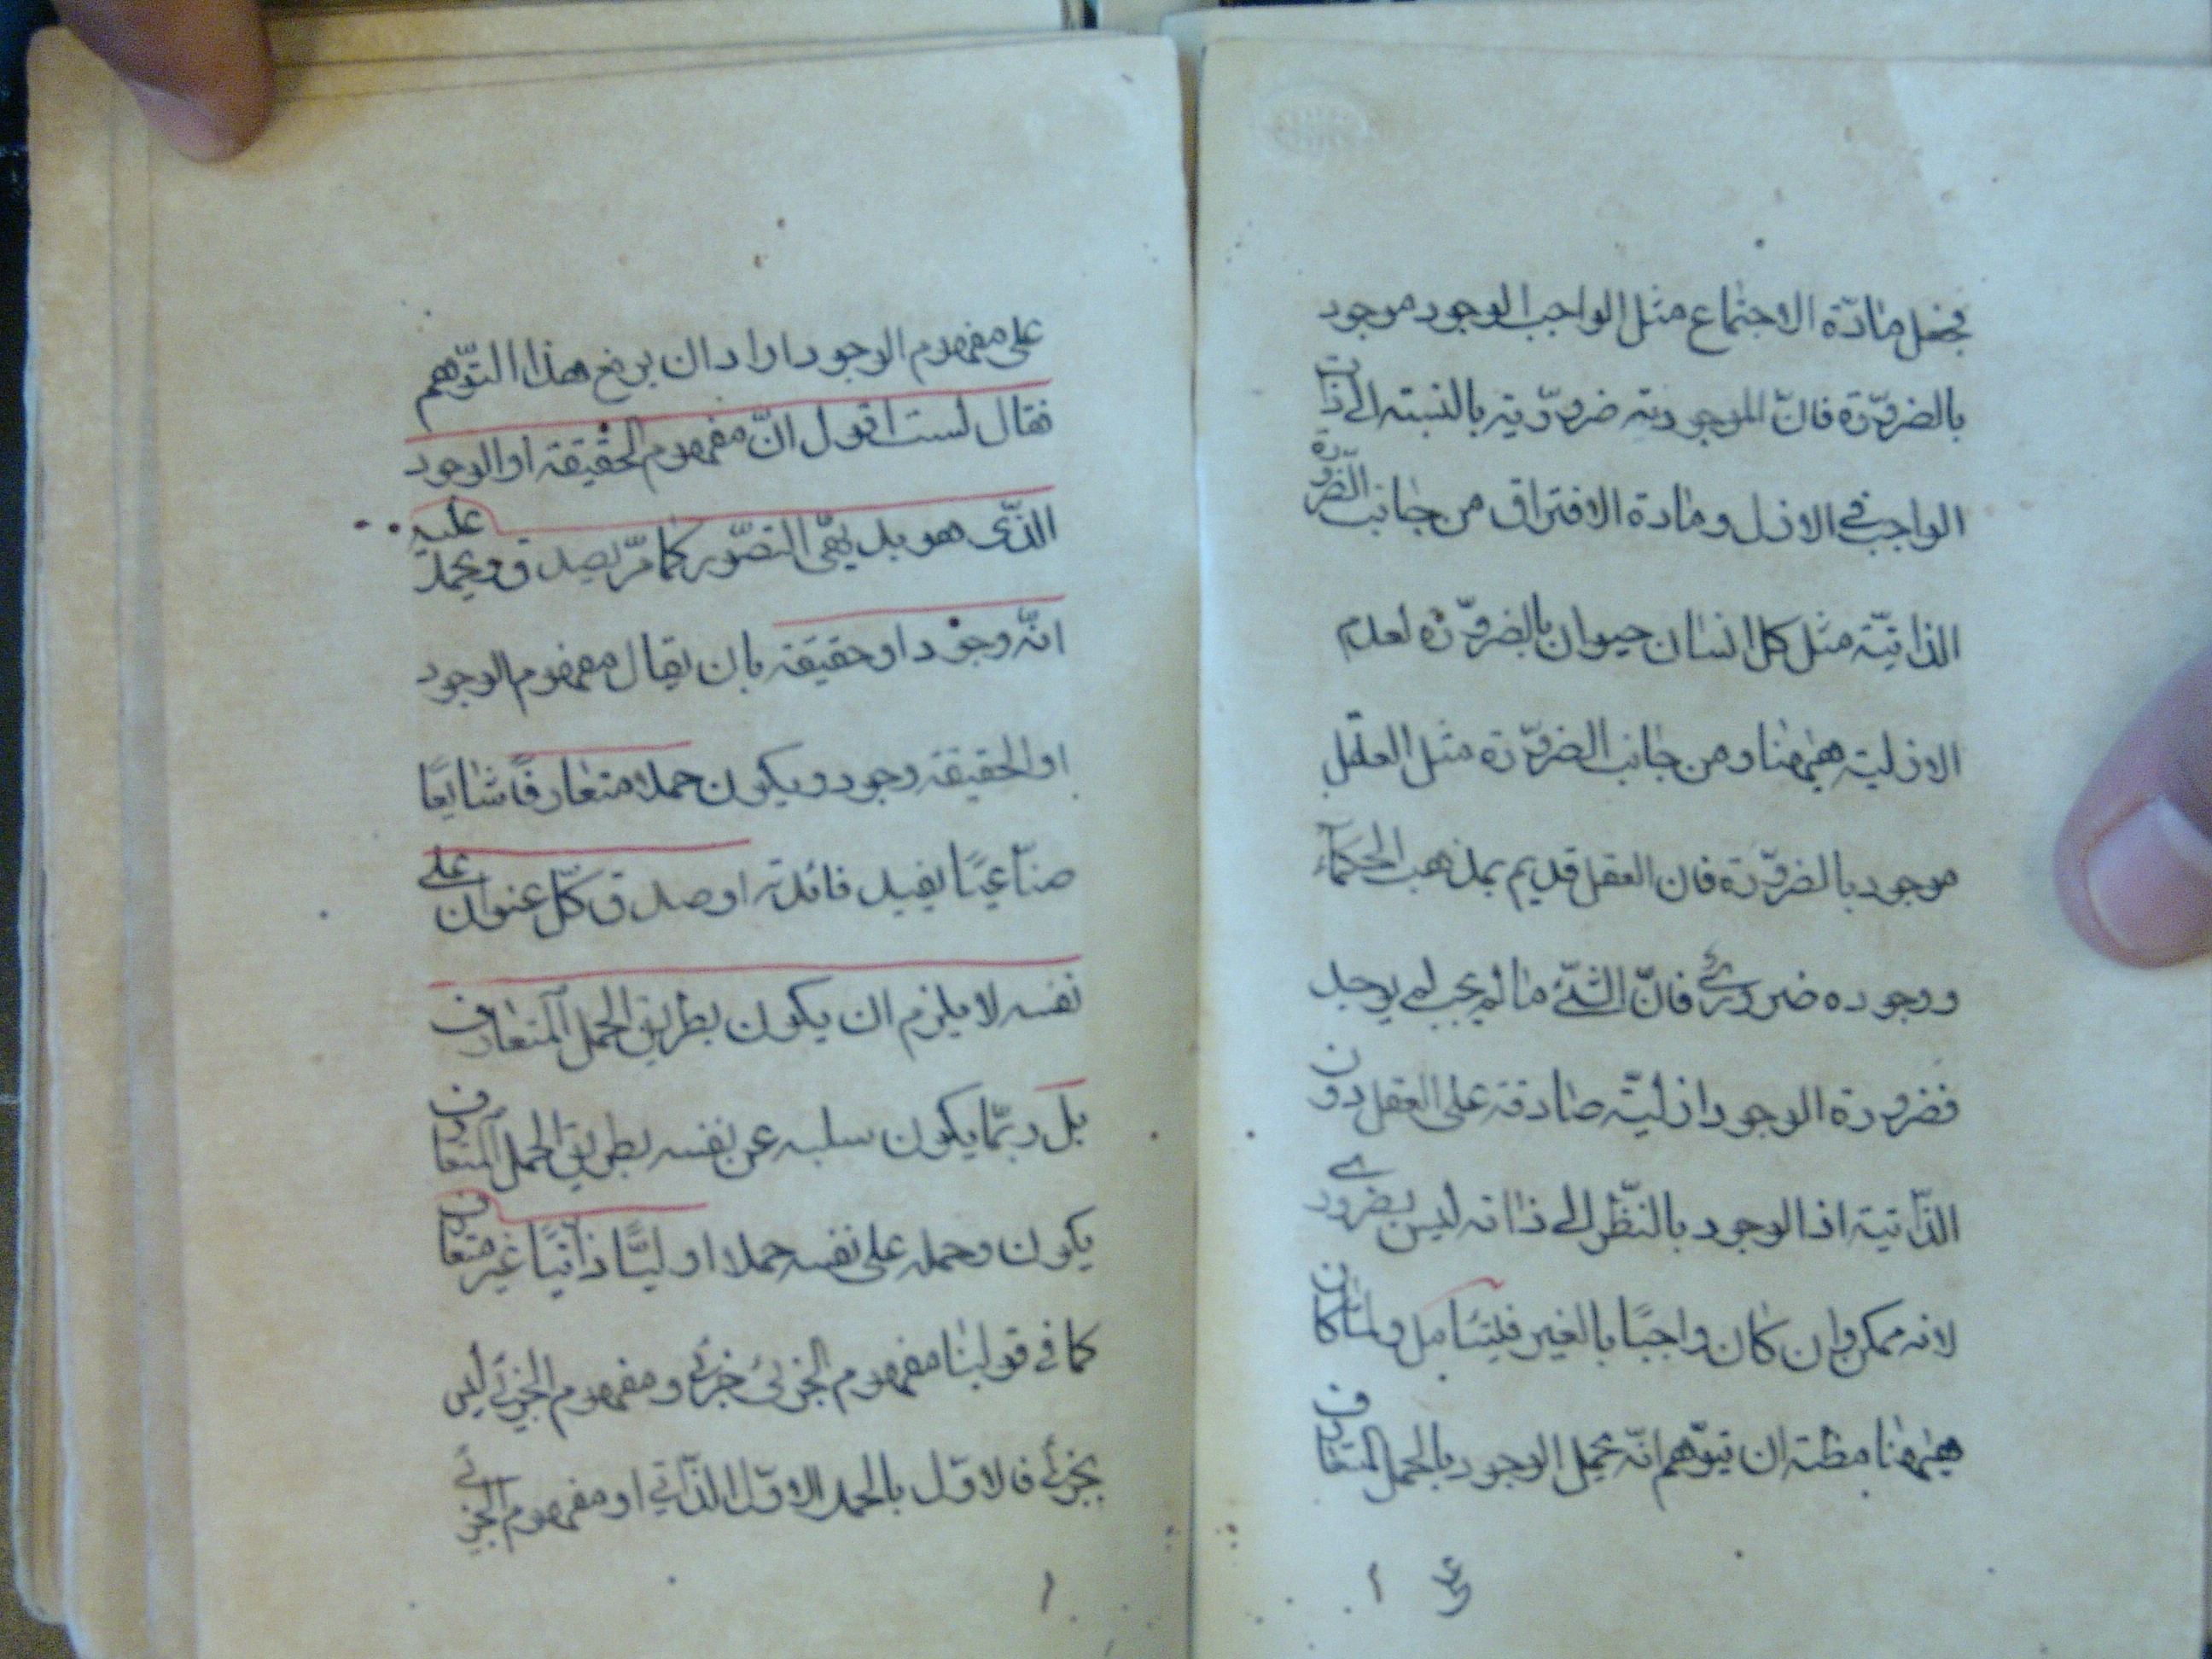 فجعل مادّة الاجتماع مثل الواجب الوجود موجود
بالضروّرة فانّ الموجوديته ضروّريته بالنسبته الى ذات
الواجب في الازل ومادة الافتراق من جانب الضّرورة
الذاتيّة مثل كل انسان حيوان بالضروّرة لعدم
الازلية هيٰهنا ومن جانب الضروّرة مثل العقل
موجود بالضروّرة فان العقل قديم بمذهب الحكماء
ووجوده ضروريّ فانّ الشئ ما لم يجب لم يوجد
فضرورة الوجود ازليّة صادقة على العقل دون
الذّاتية اذ الوجود بالنّظر الى ذاته ليس بضروري
لانه ممكن وان كان واجبًا بالغير فليتأمل ولما كان
هيٰهنا مظنة ان يتوّهم انّه يحمل الوجود بالحمل المتعارف
على مفهوم الوجود اراد ان يرفع هذا التوّهم
فقال لست اقول انّ مفهوم الحقيقة او الوجود
الذّى هو بديهّى التصّور كما مرّ يصدق ويحمل عليه
انّه وجود او حقيقة بان يقال مفهوم الوجود
او الحقيقة وجود ويكون حملا متعارفًا شايعًا
صناعيًا يفيد فائدته او صدق كلّ عنوان على
نفسه لا يلزم ان يكون بطريق الحمل المتعارف
بل ربّما يكون سلبه عن نفسه بطريق الحمل المتعارف
يكون وحمله على نفسه حملا اوليًّا ذاتيًا غير متعارف
كما في قولنا مفهوم الجزئ جزئ ومفهوم الجزئ ليس
بجزئ فالاوّل بالحمل الاوّل الذّاتي او مفهوم الجزئ